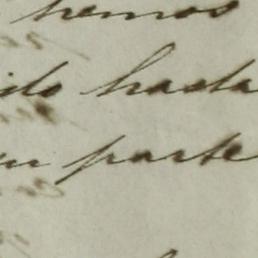 hemos
ido hasta
parte